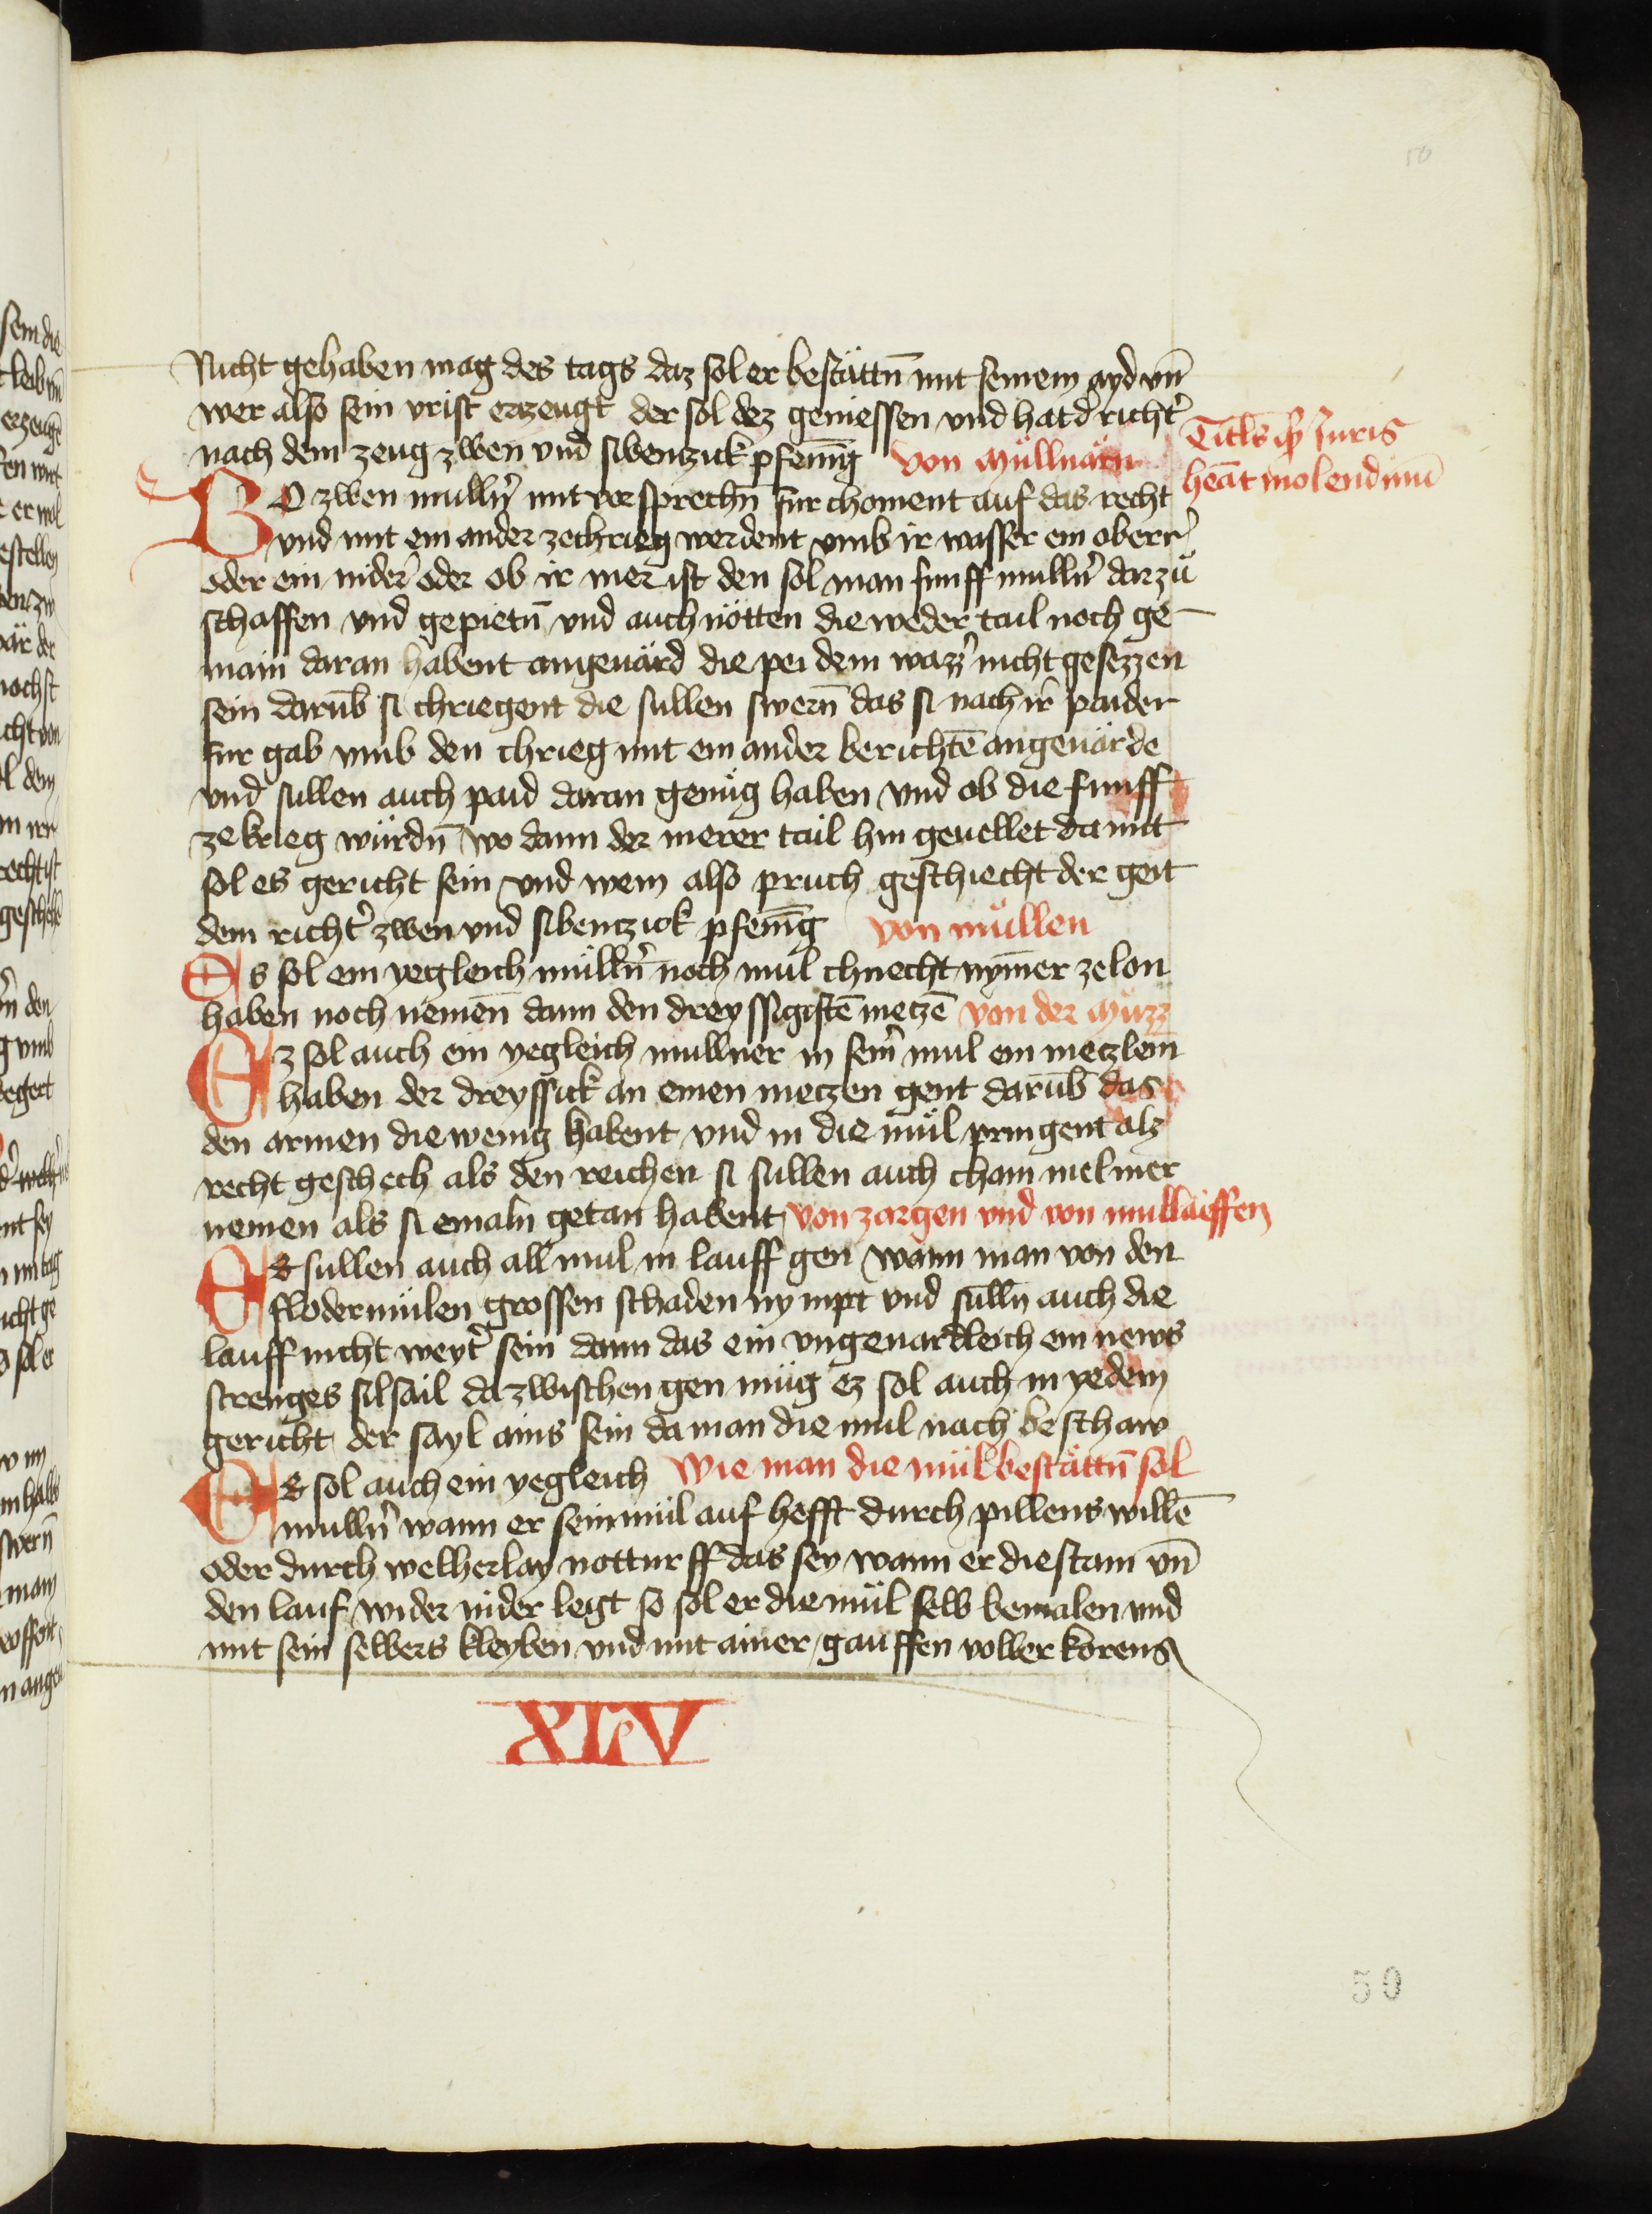 50
Nicht gehaben mag des tags daz sol er bestättn̄ mit seinem ayd vn̄
wer also sein vrist erzeugt der sol dez geniessen vnd hat d' richt'
nach dem zeug zwen vnd sibenzick pfenīg von Müllnärn
Titls qd Juris
heāt molendinū
BO zwen mulln' mit vorsprechn̄ fur choment auf das recht
vnd mit ein ander zechrieg werdent vmb ir wasser ein oberr'
oder ein nider' oder ob ir mer ist den sol man funff mulln' darzů
schaffen vnd gepietn̄ vnd auch nötten die weder tail noch ge-
main daran habent angeuärd die pei dem wazz' nicht gesezzen
sein darūb si chriegent die sullen swern̄ das si nach ir' paider
fur gab vmb den chrieg mit ein ander berichtē angeuärde
vnd sullen auch paid daran genüg haben vnd ob die funff
ze krieg würdn̄ wo dann der merer tail hin geuellet damit
sol es gericht sein vnd wem also pruch geschiecht der geit
dem richt' zwen vnd sibentzick pfenīg von müllen
Es sol ein yegleich mülln' noch mül chnecht nym̄er ze lon
haben noch nemēn dann den dreyssigistē metzē von der Müzz
Ez sol auch ein yegleich mullner in sein' mul ein metzlein
haben der dreyssick an einen metzen gent darūb das
den armen die wenig habent vnd in die mül pringent alz
recht geschech als den reichen si sullen auch chain mel mer
nemen als si emaln getan habent von zargen vnd von mullaeffen
ES sullen auch all mul in lauff gen wann man von den
flodermülen grossen schaden nympt vnd sülln̄ auch die
lauff nicht weyt' sein dann das ein vngeuardleich ein news
strenges silsail dazwischen gen müg ez sol auch in yedem
gericht der sayl ains sein da man die mul nach beschaw
ES sol auch ein yegleich wie man die mül bestättn̄ sol
mulln' wann er sein mül auf hefft durch pillens willē
oder durch welherlay notturfft das sey wann er die stain vn̄
den lauf wider nider legt so sol er die mül selb bemalen vnd
mit sein selbers kleyben vnd mit ainer gauffen voller korens
XLV
50